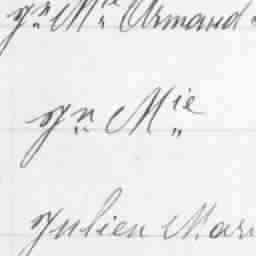 Jn Mie Armand
Jn Mie
Julien Mari